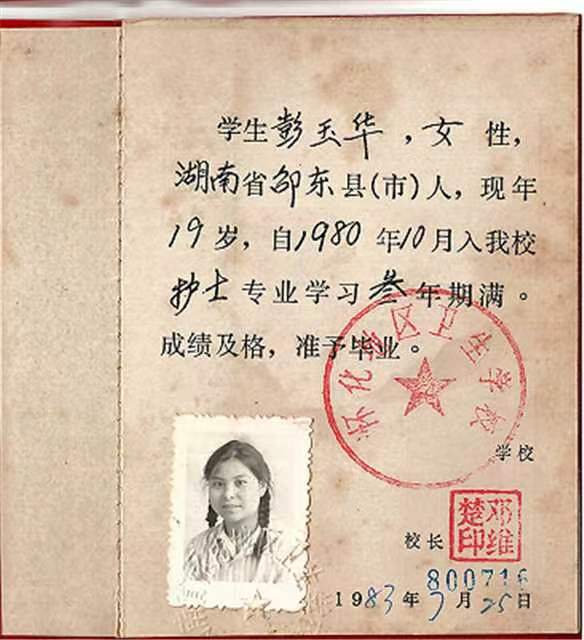 学生彭玉华，女性，
湖南省邵东县(市)人，现年
19岁，自1980年10月入我校
护士专业学习叁年期满。
成绩及格，准予毕业。
怀化地区卫生学校
学校
校长
邓维楚印
800716
1983年7月25日